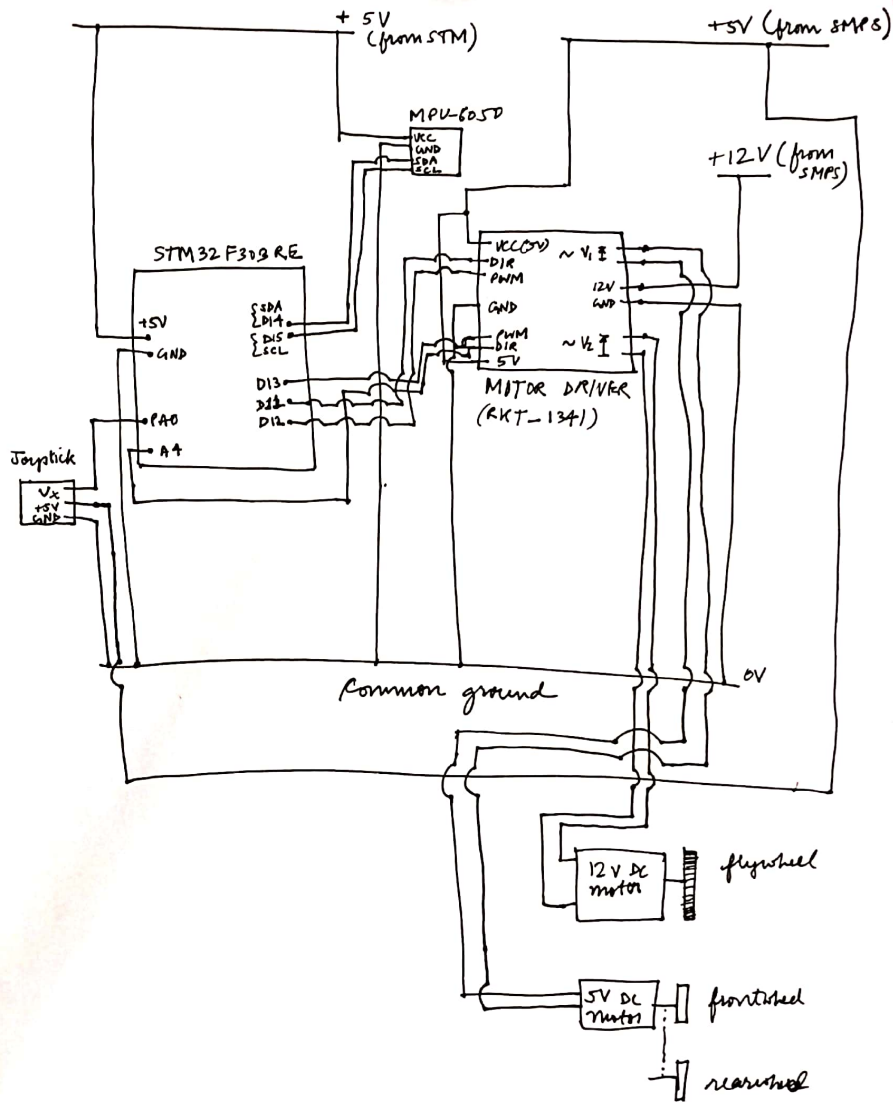 + 5V
(from STM)
+5V (from SMPS)
MPU-6050
VCC
GND
SDA
SCL
+12V (from
SMPS)
STM32F303RE
+5V
GND
PA0
A4
SDA
D14
D15
SCL
D13
D11
D12
VCC(5V)
DIR
PWM
GND
PWM
DIR
5V
~ V1
12V
GND
~ V2
MOTOR DRIVER
(RKI-1341)
Joystick
Vx
+5V
GND
0V
Common ground
12V DC
motor
flywheel
5V DC
motor
frontwheel
rearwheel